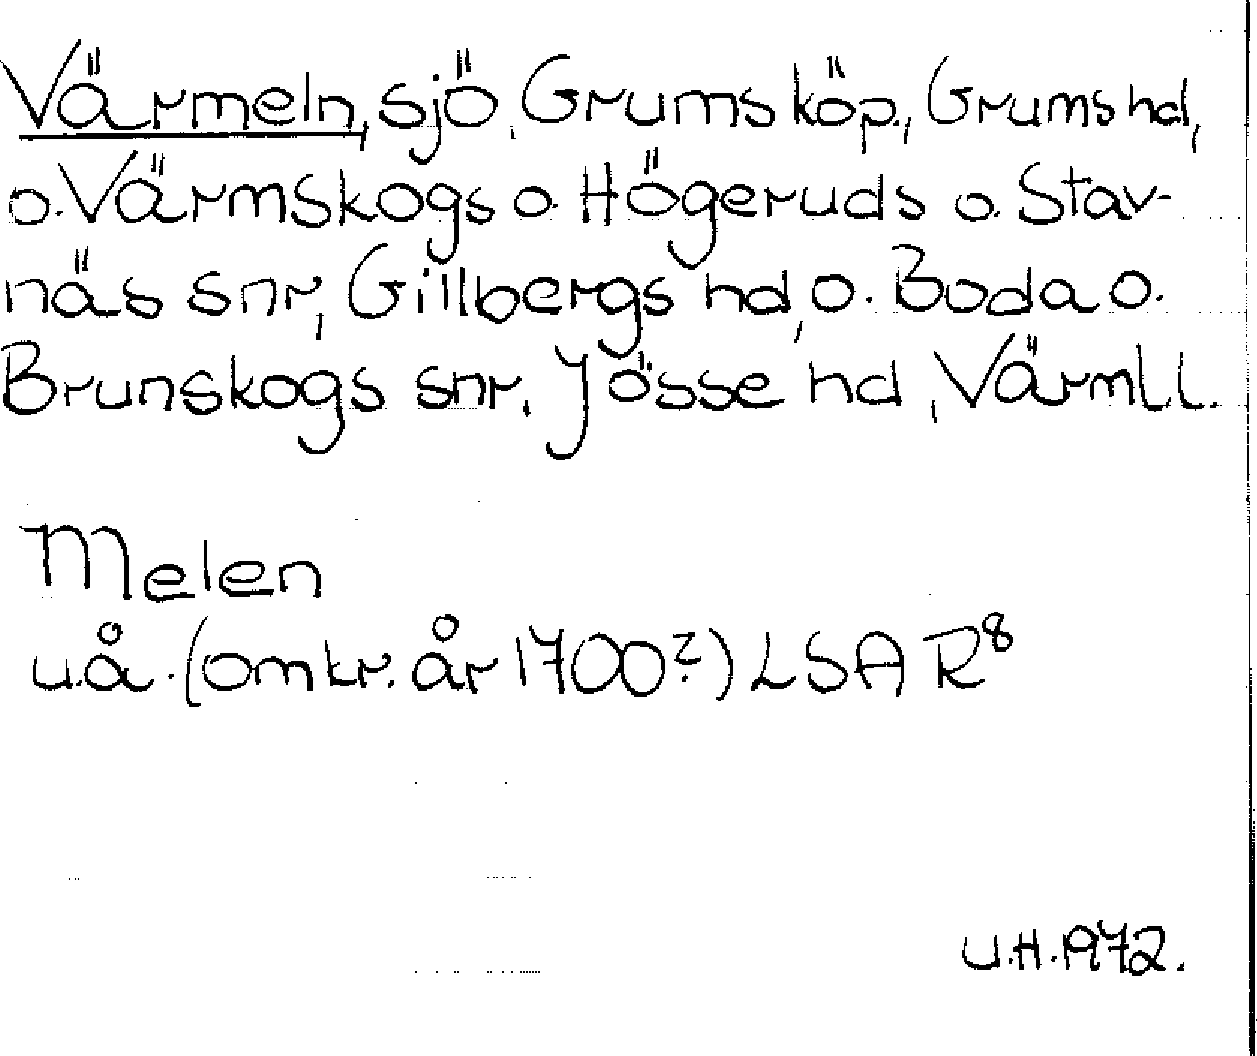 Värmeln, sjö, Grums köp., Grums hd,
o. Värmskogs o. Högeruds o. Stav-
näs snr, Gillbergs hd, o. Boda o.
Brunskogs snr, Jösse hd, Värml l.
Melen
u.å. (omkr. år 1700?) LSA R8
U.H. 1972.